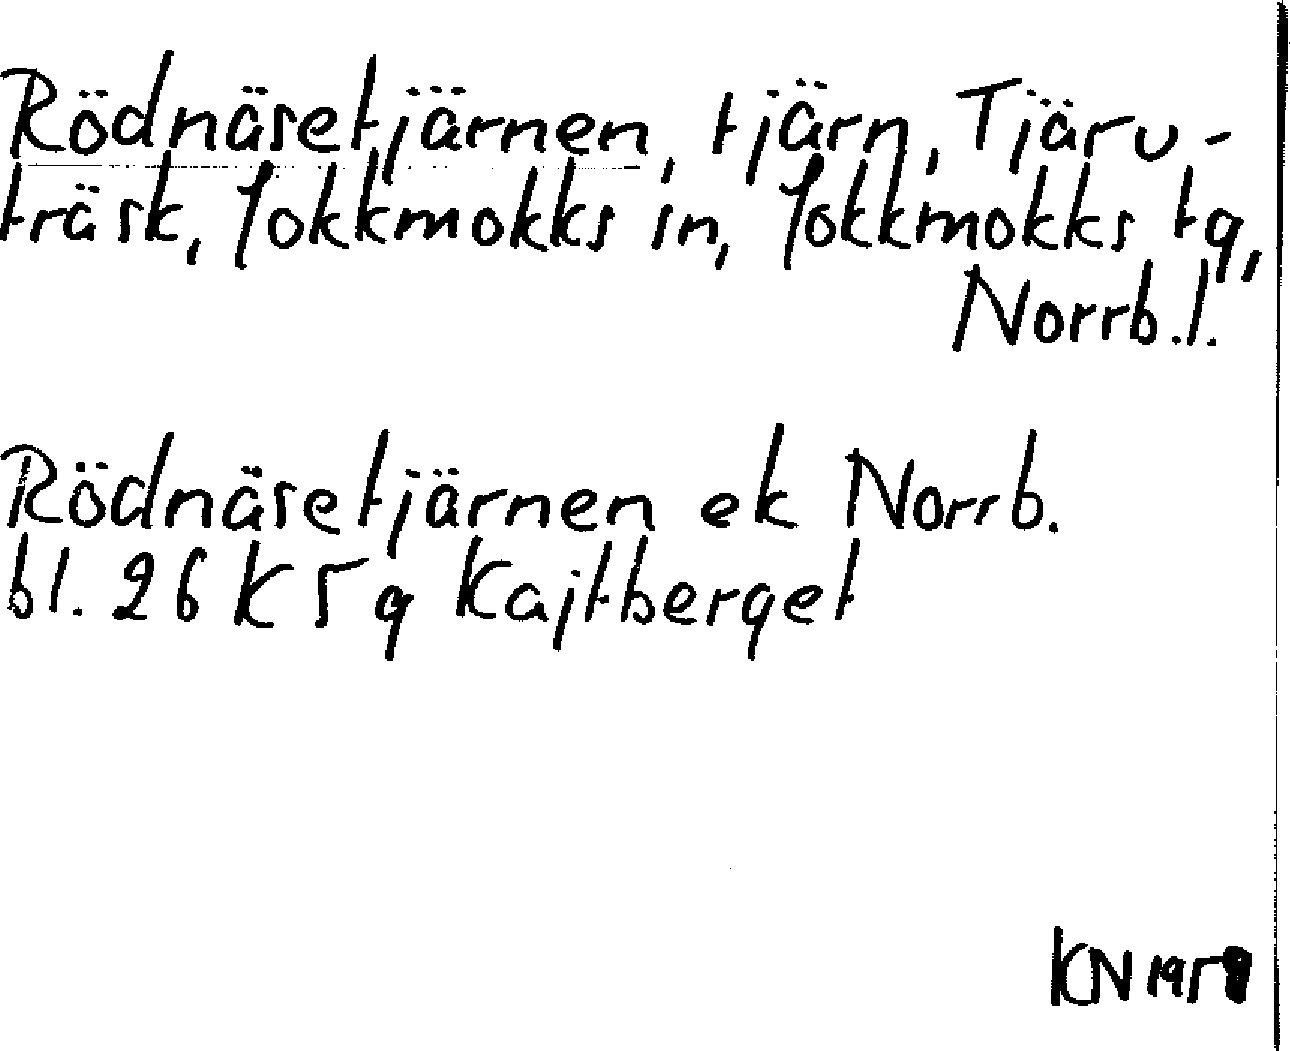 Rödnäsetjärnen, tjärn, Tjäru-
träsk, Jokkmokks sn, Jokkmokks tg,
Norrb.l.
Rödnäsetjärnen ek Norrb.
bl. 26 K 5 g Kajtberget
KN